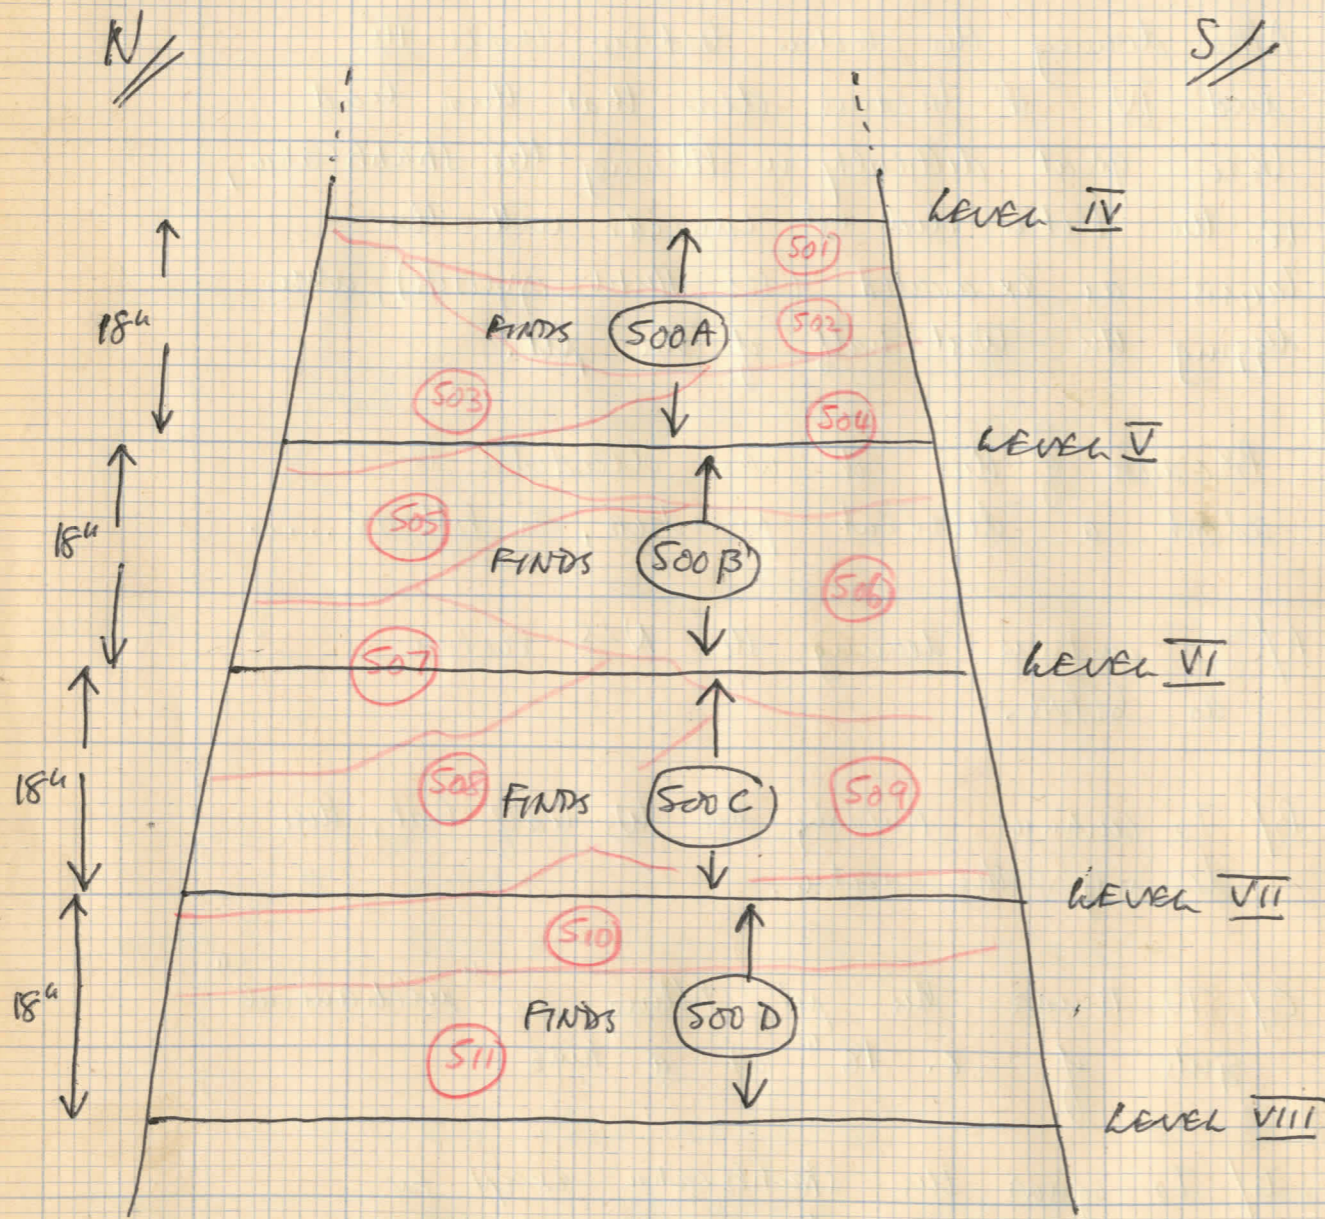 N S
LEVEL IV
501
18" FINDS 500A 502
503 504
LEVEL V
505
18" FINDS 500B 506
507
LEVEL VI
18" 508 FINDS 500C 509
LEVEL VII
510
18" FINDS 500D
511
LEVEL VIII